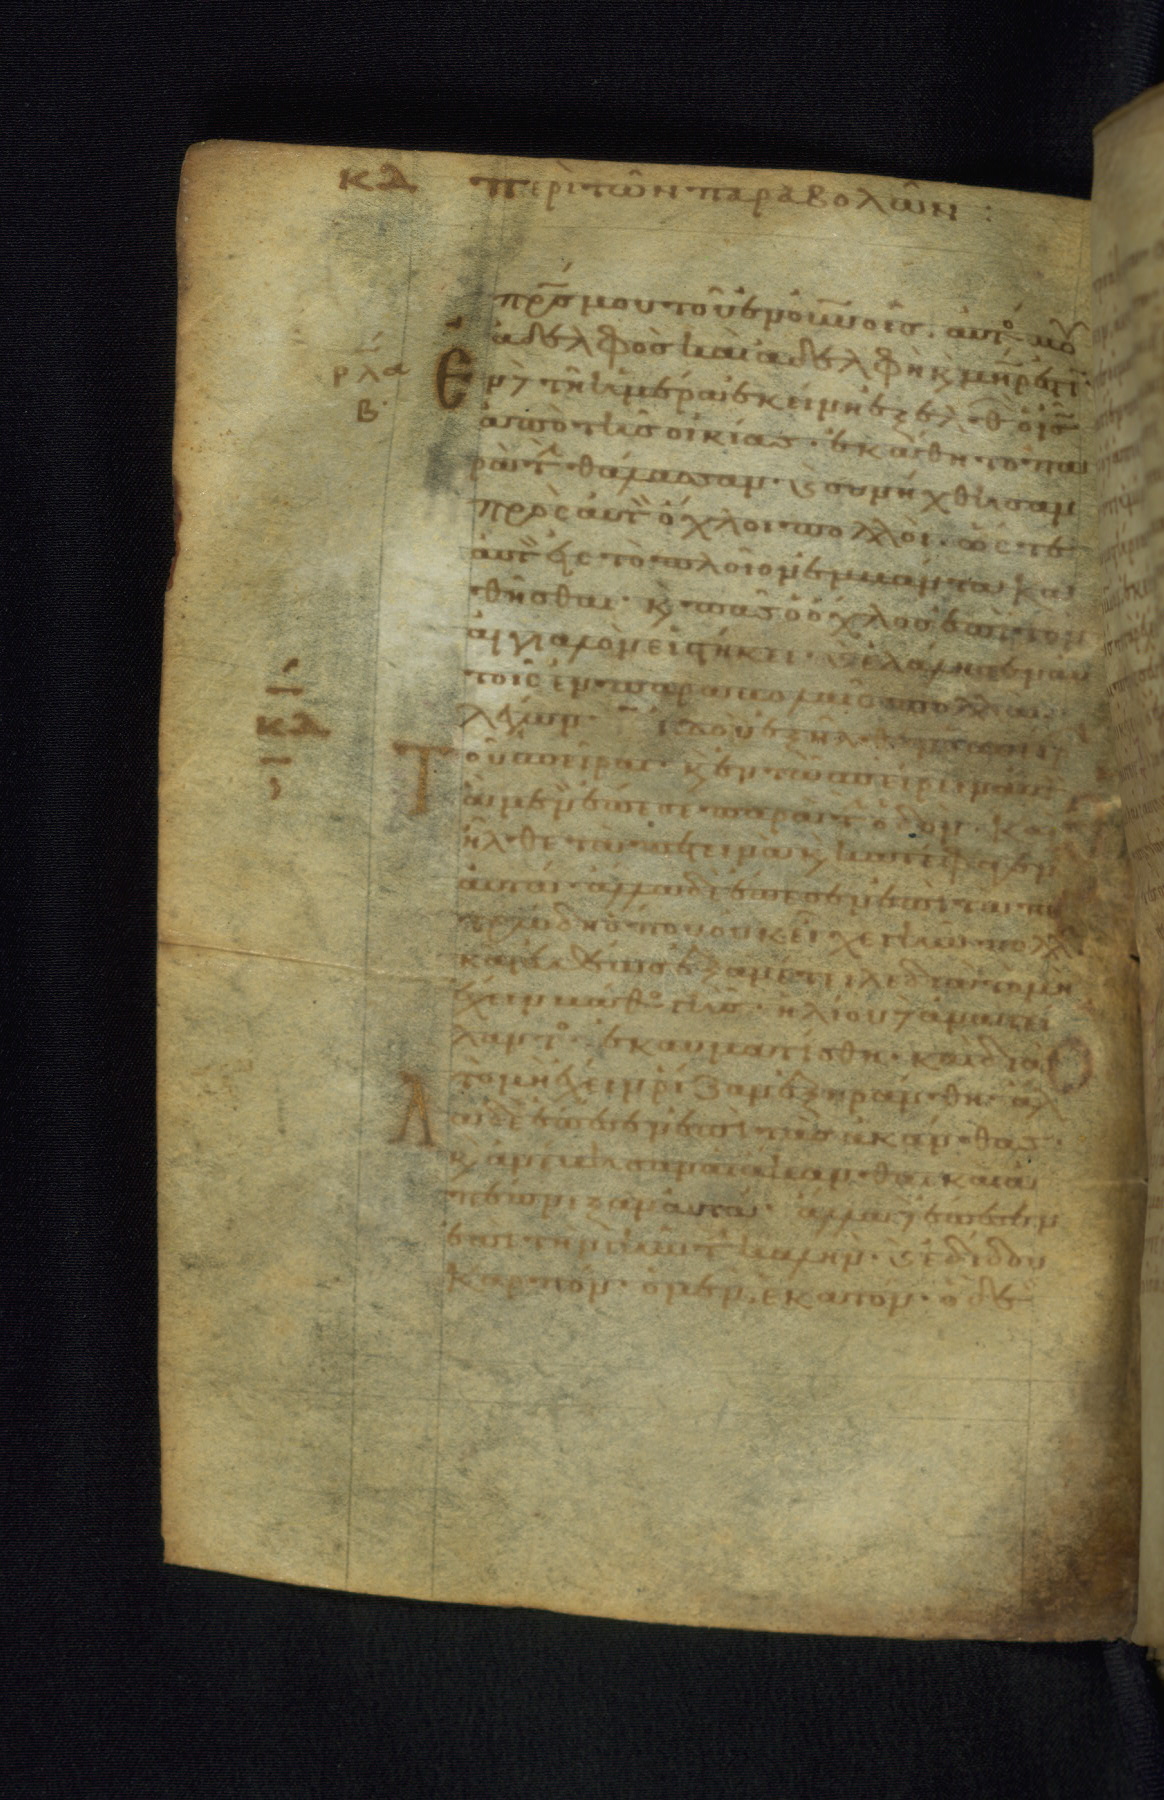 κδ περὶ τῶν παραβολῶν :
πρσ μου τοῦ ἐν οὐνοις. αυτο μου
ἀδελφὸς καὶ ἀδελφὴ κ μηρ ἐστϊ
ρλα Ε ν τῆ ἡμέραι ἐκείνη ἐξελθ ὁ ισ
β ἀπὸ τῆς οἰκίας. ἐκάθητο πα
ρὰ τ θάλασσαν. κ συνήχθησαν
πρὸς αυτ ὄχλοι πολλοὶ. ὥστε
αυτ εἰς τὸ πλοῖον ἐμβάντα κα
θῆσθαι. κ πᾶς ὁ ὄχλος ἐπὶ τὸν
αἰγιαλὸν εἱστήκει. κ ἐλάλησεν αυ
τοῖς ἐν παραβολαῖς πολλα.
κδ λέγων. ἰδοὺ ἐξῆλθεν ὁ σπείρων
ς Τ οῦ σπείραι. κ ἐν τῶ σπείρειν αυτ
ἃ μεν ἔπεσε παρὰ τ ὁδόν. και
ἦλθε τὰ πετεινὰ κ κατέφαγεν
αυτά. ἄλλα δὲ ἔπεσεν ἐπὶ τὰ πε
τρώδη ὅπου οὐκ εῖχε γῆν πολλ
καὶ εὐθέως ἐξανέτειλε διὰ τὸ μὴ
ἔχειν βάθος γῆς. ἡλίου δ ἀνατεί
λαντος ἐκαυματίσθη. καὶ διὰ
τὸ μὴ ἔχειν ρίζαν ἐξηράνθη. ἄλ
Λ α δὲ ἔπεσεν ἐπὶ τὰς ἀκάνθας.
κ ἀνέβησαν αἱ ἄκανθαι καὶ ἀ
πέπνιξαν αυτά. ἄλλα δ ἔπεσεν
ἐπὶ τὴν γῆν τ καλήν. κ ἐδίδου
καρπόν. ὁ μὲν ἑκατόν. ὁ δὲ